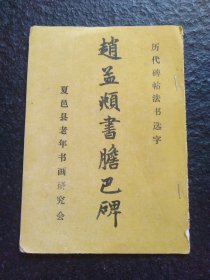 历代碑帖法书选字
趙孟頫書膽巴碑
夏邑县老年书画研究会